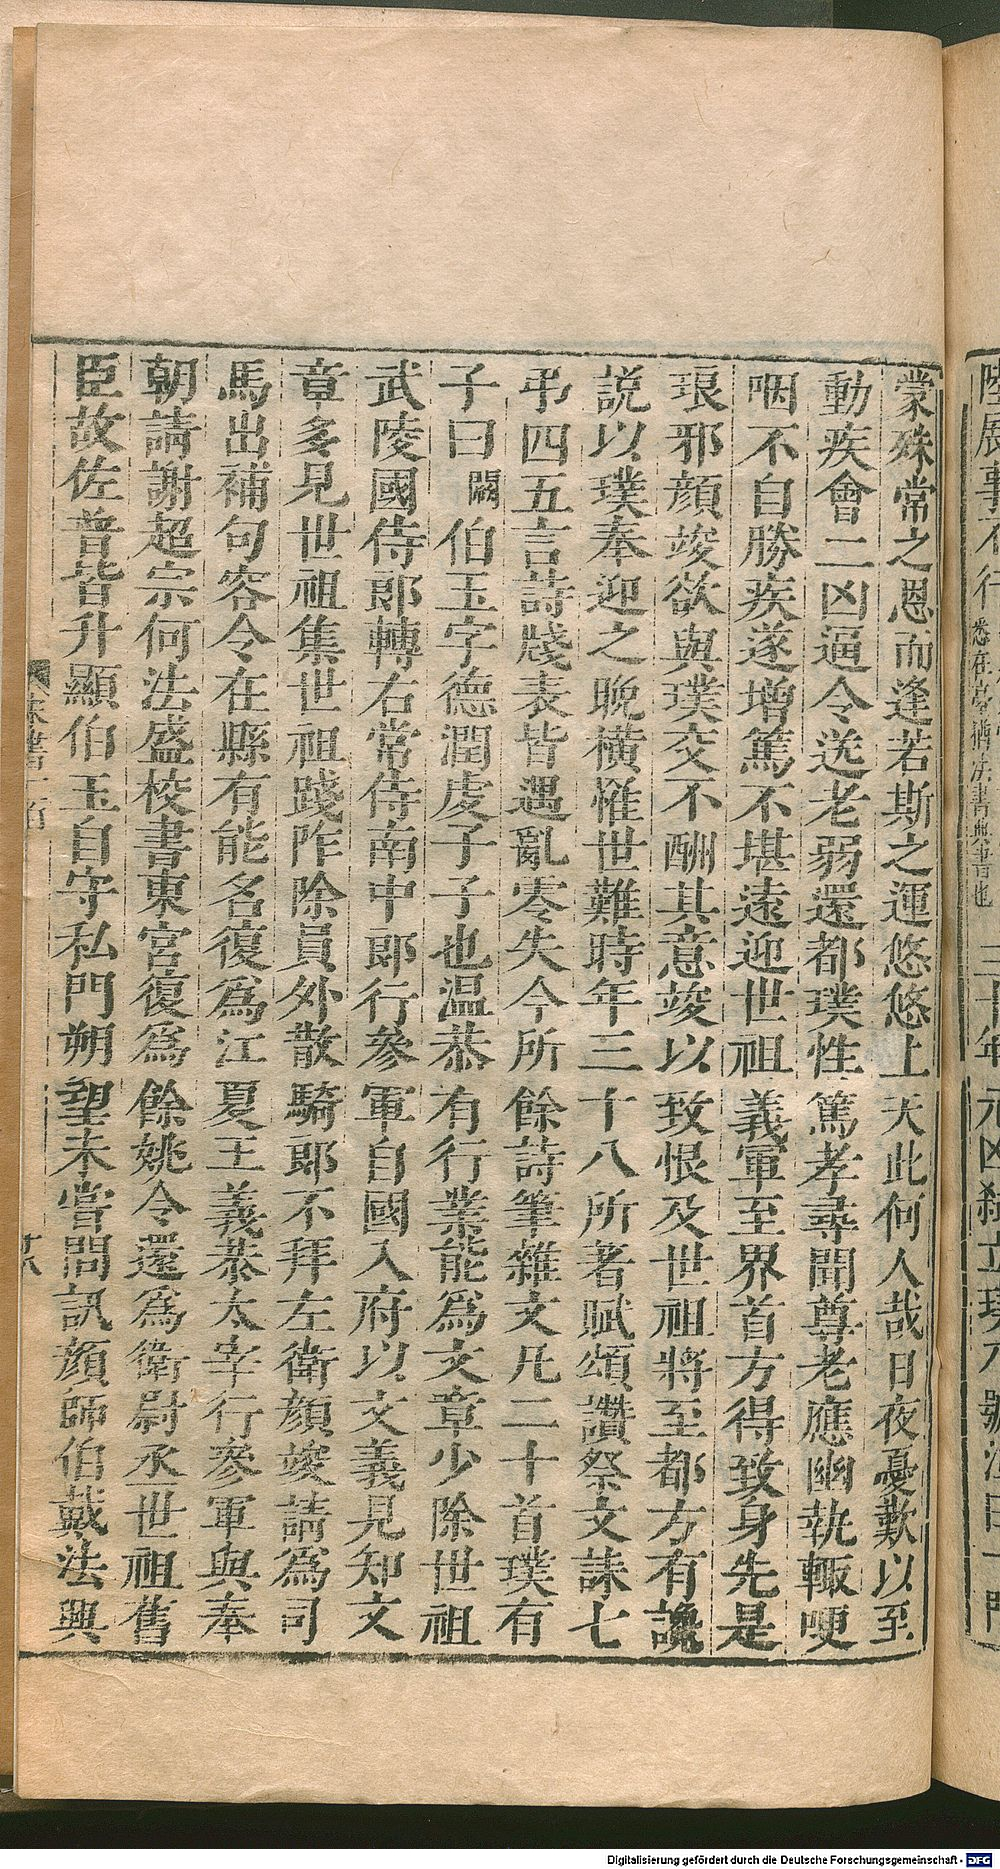 蒙殊常之恩而逢若斯之運悠悠上天此何人哉日夜憂歎以至
動疾會二凶逼令送老弱還都璞性篤孝尋聞尊老應幽執輙哽
咽不自勝疾遂增篤不堪遠迎世祖義軍至界首方得致身先是
琅邪顔竣欲與璞交不酬其意竣以致恨及世祖將至都方有讒
說以璞奉迎之晚橫罹世難時年三十八所著賦頌讚祭文誄七
弔四五言詩牋表皆遇亂零失今所餘詩筆雜文凡二十首璞有
子曰闕伯玉字德潤虔子子也温恭有行業能爲文章少除世祖
武陵國侍郎轉右常侍南中郎行參軍自國入府以文義見知文
章多見世祖集世祖踐阼除員外散騎郎不拜左衛顔竣請爲司
馬出補句容令在縣有能名復爲江夏王義恭太宰行參軍與奉
朝請謝超宗何法盛校書東宮復爲餘姚令還爲衛尉丞世祖舊
臣故佐普皆升顯伯玉自守私門朔望未嘗問訊顔師伯戴法興
Digitalisierung gefördert durch die Deutsche Forschungsgemeinschaft - DFG